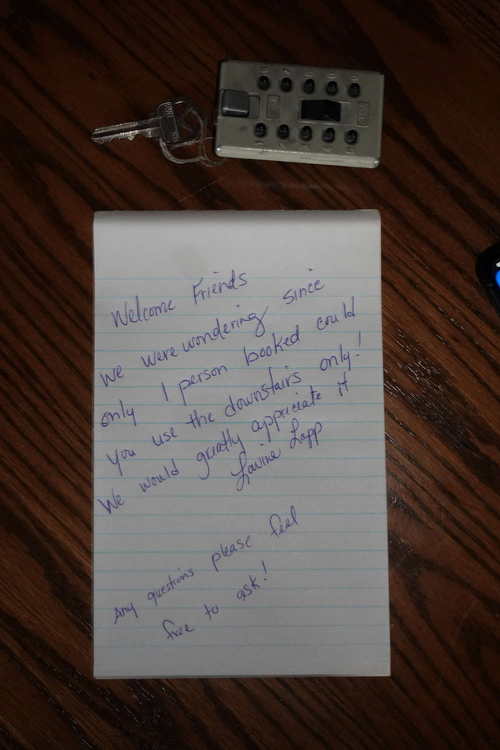 Welcome Friends
We were wondering since
only 1 person booked could
you use the downstairs only!
We would greatly appriciate it
Lavine Lapp
Any questions please feel
free to ask!